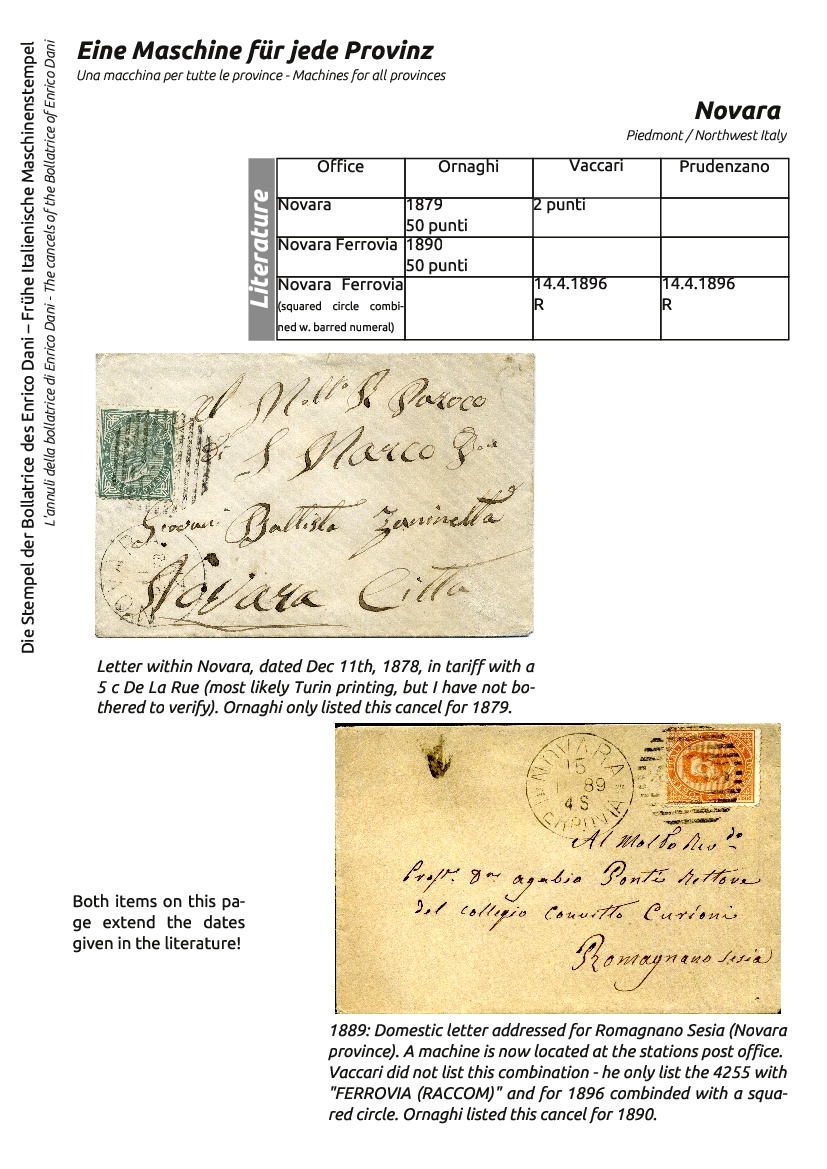 Eine Maschine für jede Provinz
Una macchina per tutte le province - Machines for all provinces
Novara
Piedmont / Northwest Italy
Die Stempel der Bollatrice des Enrico Dani – Frühe Italienische Maschinenstempel
L'annuli della bollatrice di Enrico Dani - The cancels of the Bollatrice of Enrico Dani
Literature
Office Ornaghi Vaccari Prudenzano
Novara 1879 2 punti
50 punti
Novara Ferrovia 1890
50 punti
Novara Ferrovia 14.4.1896 14.4.1896
(squared circle combi- R R
ned w. barred numeral)
al Paroco
di S Marco
Giovani Battista Zaninetta
Novara Citta
Letter within Novara, dated Dec 11th, 1878, in tariff with a
5 c De La Rue (most likely Turin printing, but I have not bo-
thered to verify). Ornaghi only listed this cancel for 1879.
NOVARA
15
89
4 S
FERROVIA
Al
Prof. agabio Ponti Rettore
del collegio convitto Curioni
Romagnano Sesia
Both items on this pa-
ge extend the dates
given in the literature!
1889: Domestic letter addressed for Romagnano Sesia (Novara
province). A machine is now located at the stations post office.
Vaccari did not list this combination - he only list the 4255 with
"FERROVIA (RACCOM)" and for 1896 combinded with a squa-
red circle. Ornaghi listed this cancel for 1890.